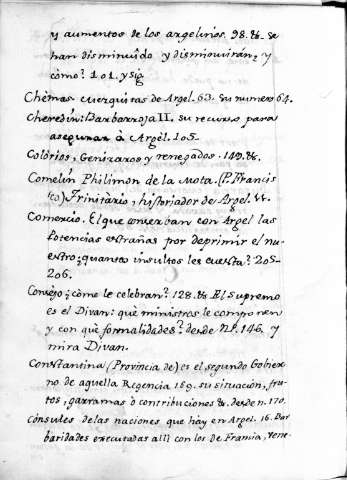 y aumentos de los argelinos. 98. &. se
han disminuido y dismiouirán? y
còmo? 101. y sig
Chêmas cuerquitas de Argel. 63. su numero 64.
Cheredin: Barbarroja II. su recurso para
asegurar à Argèl. 105.
Colòrios, Genizaros y renegados. 149. &.
Comelin Philimon de la Mota. (P. Francis
co) Trinitario, historiador de Argel. VI.
Comercio. El que conserban con Argel las
Potencias estrañas por deprimir el nu-
estro; quantos insultos les cuesta? 205-
206.
Consejo; còme le celebran? 128. & El supremo
es el Divan: què ministros le componen
y con què formalidades? desde nº. 146. y
mira Divan.
Constantina (Provincia de) es el segundo Gobier
no de aquella Regencia 169. su situación, fru-
tos, garramas ò contribuciones &. desde n. 170.
Cònsules de las naciones que hay en Argel. 16. Bar
baridades executadas alli con los de Francia, Vene-